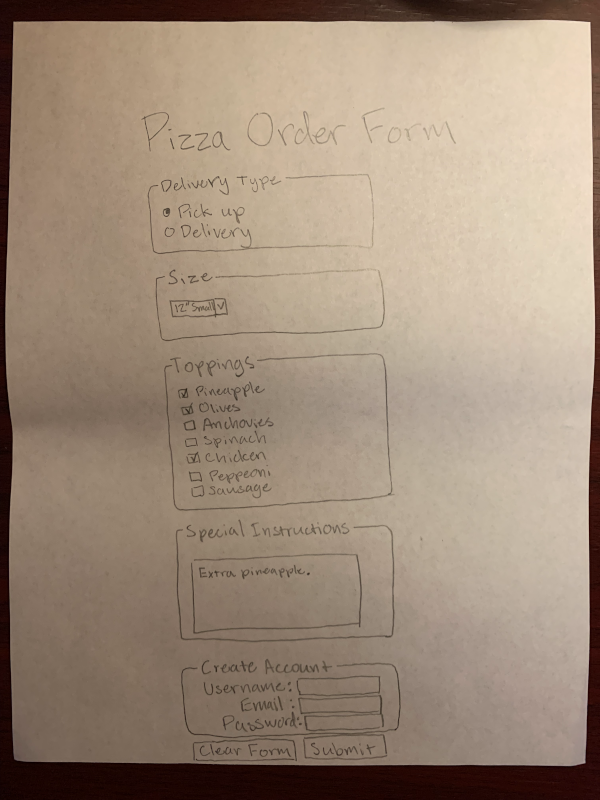 Pizza Order Form
Delivery Type
Pick up
Delivery
Size
12" Small
Toppings
Pineapple
Olives
Anchovies
Spinach
Chicken
Peppeoni
Sausage
Special Instructions
Extra pineapple.
Create Account
Username:
Email :
Password:
Clear Form Submit